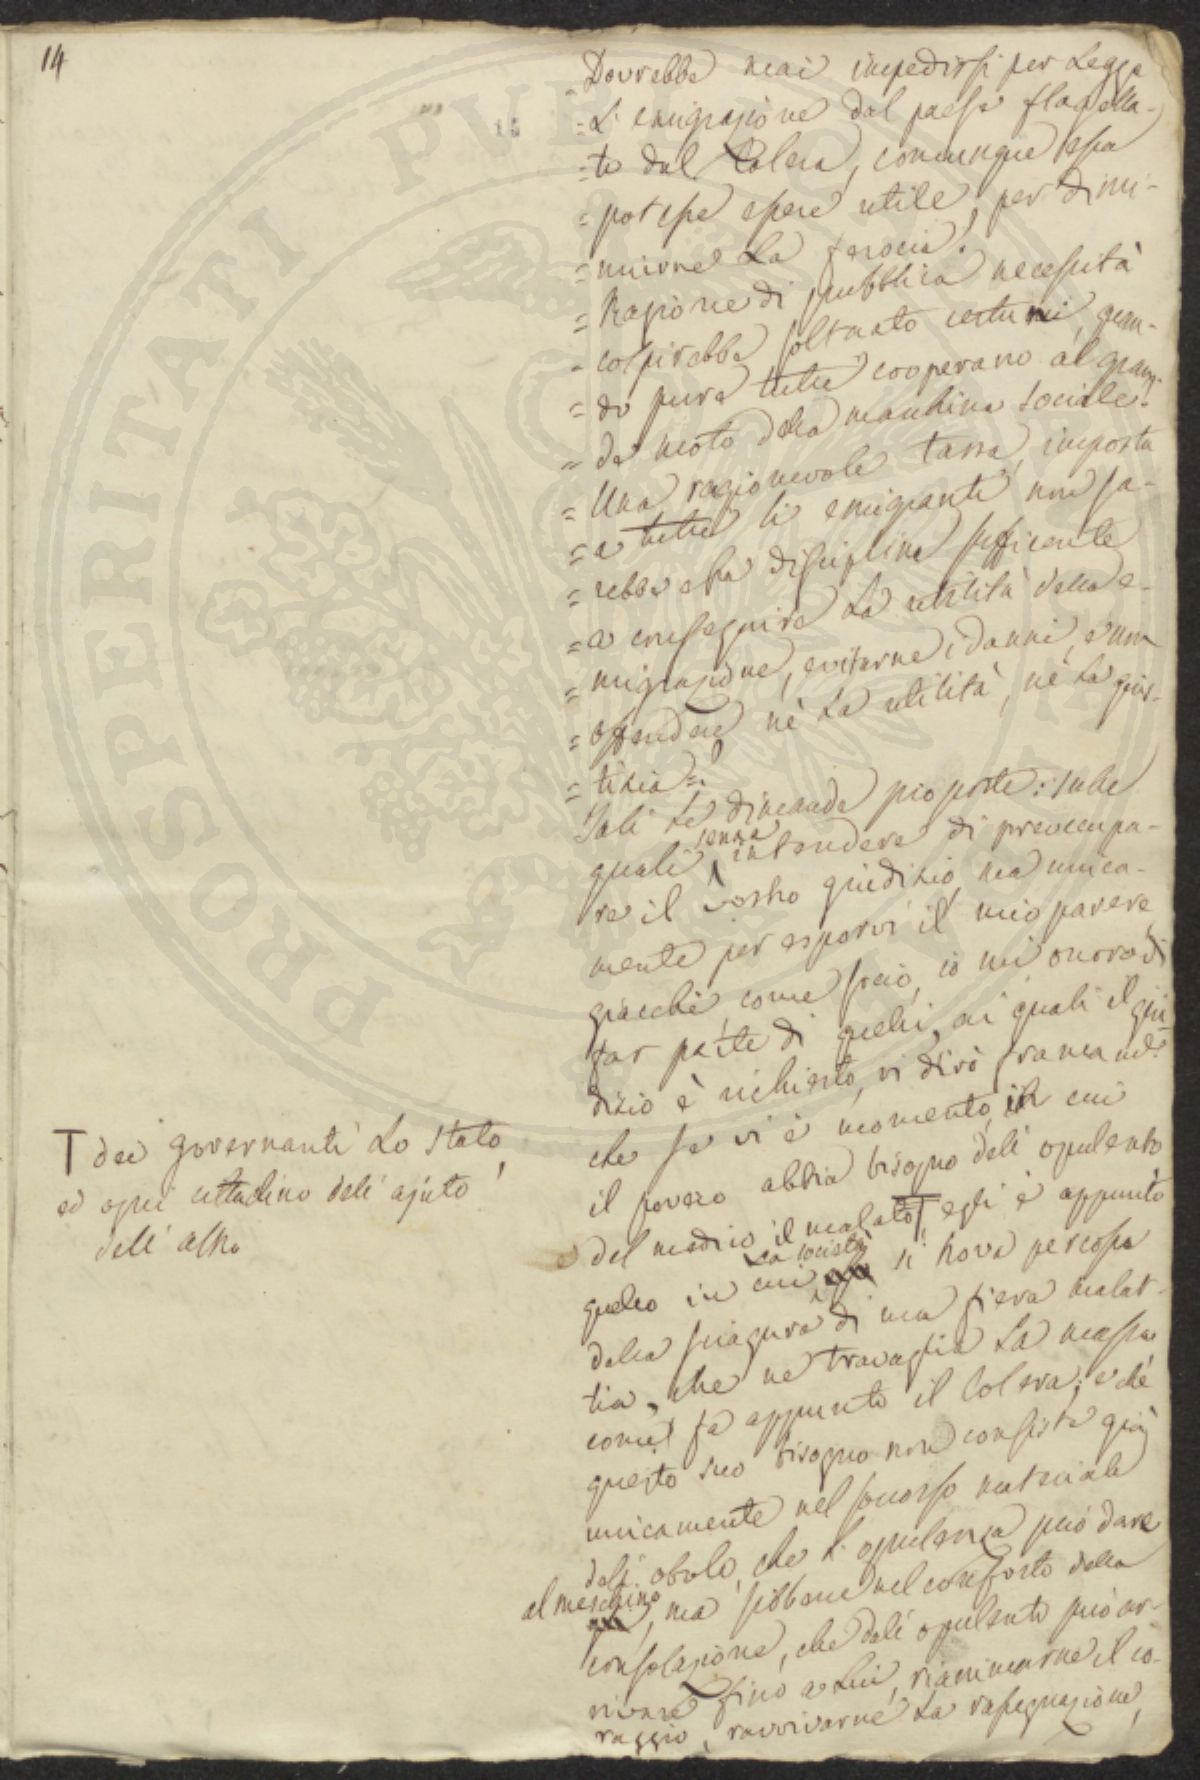 14
Dovrebbe mai impedirsi per Legge
= L'emigrazione dal paese flagella-
= to dal Colera, comunque essa
= potesse essere utile, per dimi-
= nuirne La ferocia?
= Ragione di pubblica necessità
= colpirebbe soltanto certuni, quan-
= do pure tutti cooperano al gran-
= de moto della macchina sociale?
= Una ragionevole tassa, imposta
= a tutti li emigranti non sa-
= rebbe essa disciplina sufficiente
= a conseguire La utilità della e-
= migrazione, evitarne i danni, e non
= offendere nè La utilità, nè La giu-
= stizia =?
Tali Le dimande proposte: sulle
quali senza intendere di preoccupa-
re il vostro giudizio, ma unica-
mente per esporvi il mio parere
giacchè come socio, io mi onoro di
far parte di quelli, ai quali il giu-
dizio è richiesto, vi dirò francamte
che se vi è momento, in cui
il povero abbia bisogno dell'opulento
del medico il malato T, egli è appunto
quello in cui La società si trova percossa
dalla sciagura di una fiera malat-
tia, che ne travaglia La massa
come fa appunto il Colera; e che
questo suo bisogno non consiste già
unicamente nel soccorso materiale
dell'obolo, che L'opulenza può dare
al meschino, ma sibbene nel conforto della
consolazione, che dall'opulento può ar-
rivare fino a Lui, rianimarne il co-
raggio, ravvivarne La rassegnazione,
T dei governanti Lo Stato,
ed ogni cittadino dell'ajuto
dell'altro
PROSPERITATI